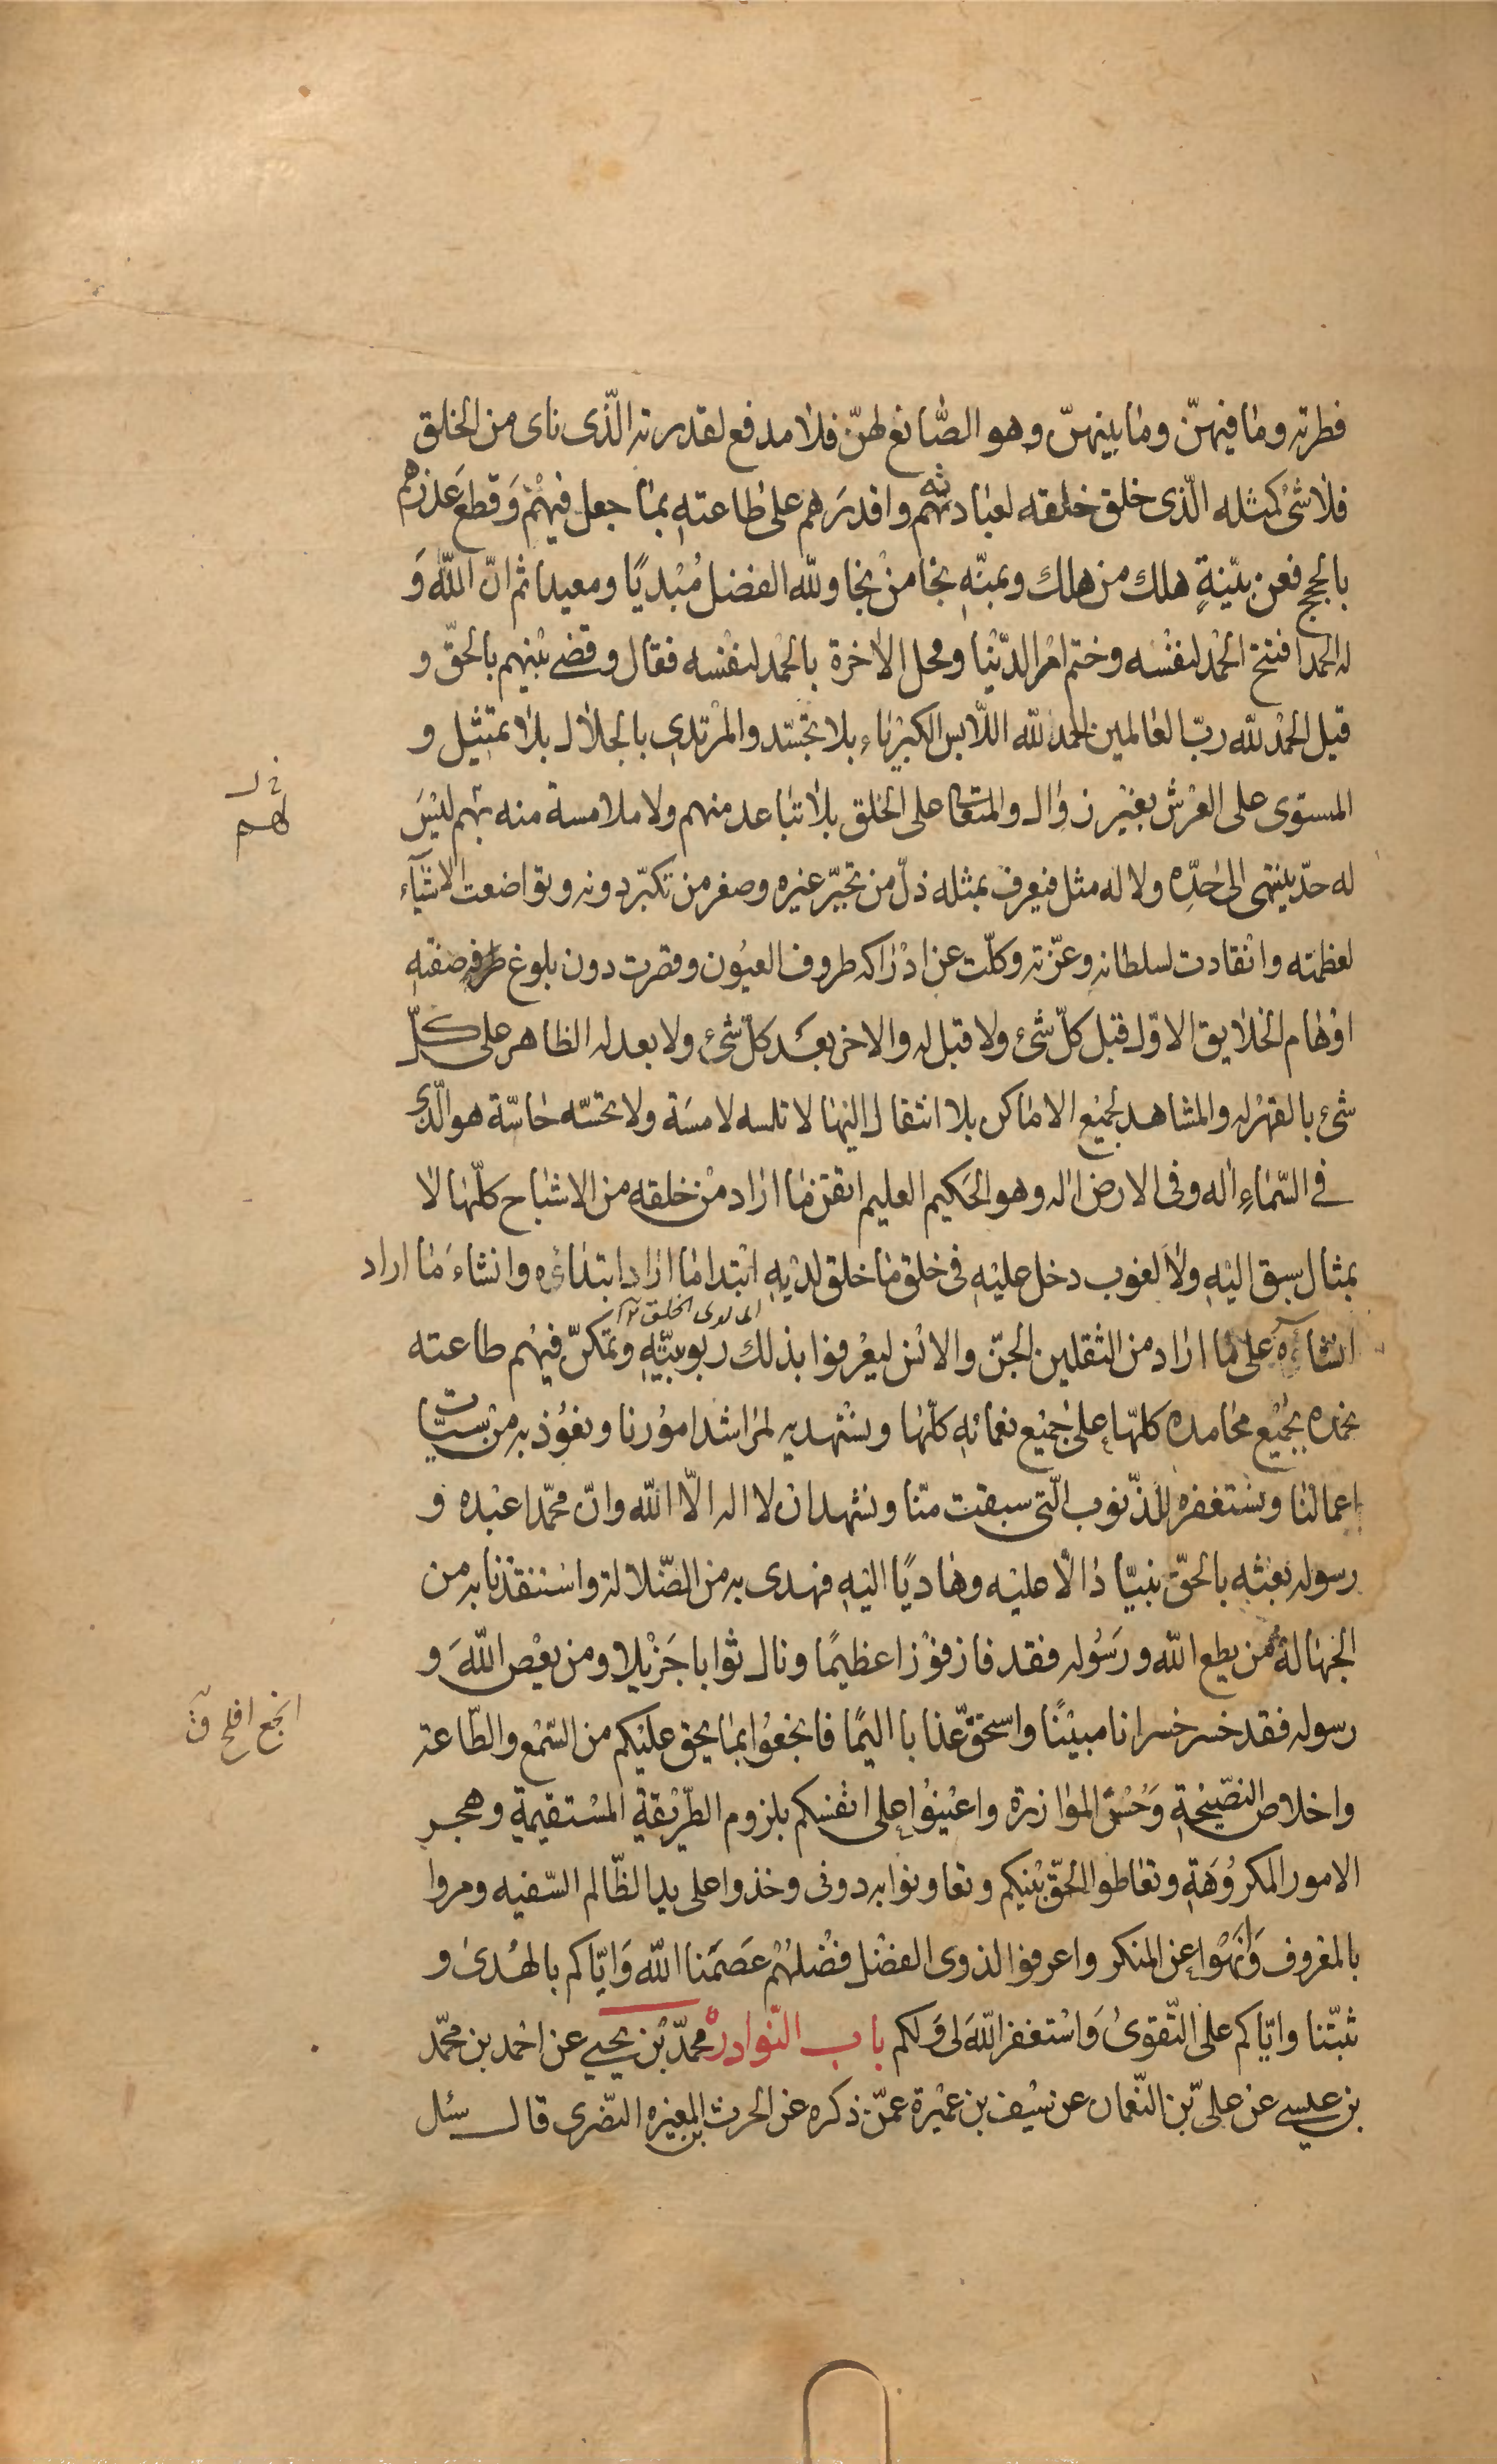 فطرته وما فيهنّ وما بينهنّ وهو الصّانع لهنّ فلا مدفع لقدرته الّذى ناى من الخلق
فلا شئ كمثله الّذى خلق خلقه لعبادته واقدرهم على طاعته بما جعل فيهم وقطع عذرهم
بالحجج فعن بيّنةٍ هلك من هلك وبمنّه نجا من نجا ولله الفضل مُبْديًا ومعيدا ثم انّ الله وَ
له الحمد افتتح الحمد لنفسه وختم امر الدّنيا ومحل الاخرة بالحمد لنفسه فقال وقضى بينهم بالحقّ و
قيل الحمد لله ربّ العالمين الحمد لله اللّابس الكبرياء بلا تجسّد والمرتدى بالجلال بلا تمثيل و
المستوى على العرش بغير زوال والمتعالى على الخلق بلا تباعد منهم ولا ملامسة منه بهم ليس
لهم
له حدّ ينتهى الى حدّه ولا له مثل فيعرف بمثله ذلّ من تجبّر غيره وصغر من تكبّر دونه وتواضعت الاشيآء
لعظمته وانقادت لسلطانه وعزّته وكلّت عن ادراكه طروف العيون وقصرت دون بلوغ صفته
اوهام الخلايق الاوّل قبل كلّ شئ ولا قبل له والاخر بعد كلّ شئ ولا بعد له الظاهر على كلّ
شئ بالقهر له والمشاهد لجميع الاماكن بلا انتقال اليها لا تلمسه لامسة ولا تحسّه حاسّة هو الّذى
فى السّماءِ اله وفى الارض اله وهو الحكيم العليم اتقن ما اراد من خلقه من الاشباح كلّها لا
بمثال سبق اليه ولا لغوب دخل عليه فى خلق ما خلق لديه ابتدا ما اراد ابتداءه وانشاءَ ما اراد
انشاءه على ما اراد من الثقلين الجنّ والانس ليعرفوا بذلك ربوبيّته وتمكّن فيهم طاعته
نحمده بجميع محامده كلّها على جميع نعمائه كلّها ونستهديه لمراشد امورنا ونعوذ به من سيّات
اعمالنا ونستغفره للذّنوب الّتى سبقت منّا ونشهد ان لا اله الّا الله وانّ محمّدا عبده و
رسوله بعثه بالحقّ نبيّا دالّا عليه وهاديًا اليه فهدى به من الضّلالة واستنقذنا به من
الجهالة من يطع الله ورسوله فقد فاز فوزا عظيمًا ونال ثوابا جزيلا ومن يعص اللهَ و
رسوله فقد خسر خسرانا مبينًا واستحقّ عذابا اليمًا فانجعوا بما يحق عليكم من السّمع والطّاعة
انجع افلح ق
واخلاص النصّيحة وَحُسْن الموازرة واعينوا على انفسكم بلزوم الطّريقة المستقيمة وهجر
الامور المكروهة وتعاطوا الحقّ بينكم وتعاونوا به دونى وخذوا على يد الظّالم السّفيه ومروا
بالمعروف وَانهَوا عن المنكر واعرفوا لذوى الفضل فضلهُم عصَمنا الله وَايّاكم بالهُدى و
ثبّتنا وايّاكم على التّقوى وَاستغفر اللهَ لى وَلكم باب النّوادر محمّد بن يحيى عن احمد بن محمّد
بن عيسى عن علىّ بن النّعمان عن سيف بن عميرة عمّن ذكره عن الحرث بن المغيرة النّضرى قال سئل